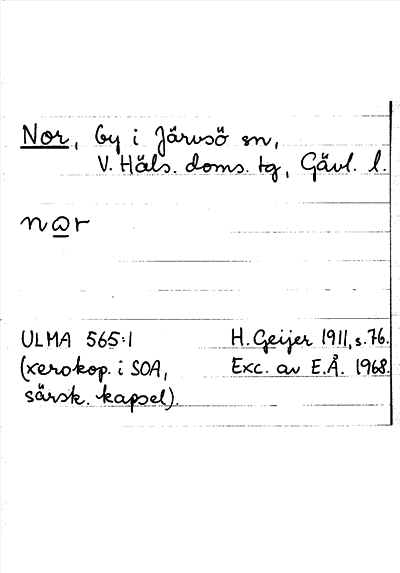 Nor, by i Järvsö sn,
V. Häls. doms. tg, Gävl. l.
nωr
ULMA 565:1 H. Geijer 1911, s. 76.
(xerokop. i SOA, Exc. av E.Å. 1968.
särsk. kapsel).